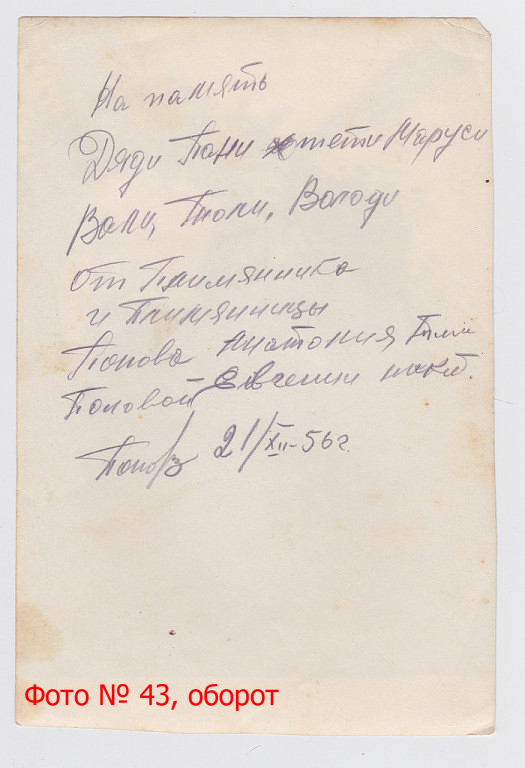 На память
Дяди Пани и тети Маруси
Вали, Толи, Володи
От Племянника
и Племянницы
Попова Анатолия
Поповой Евгении
21/XII-56 г.
Фото № 43, оборот